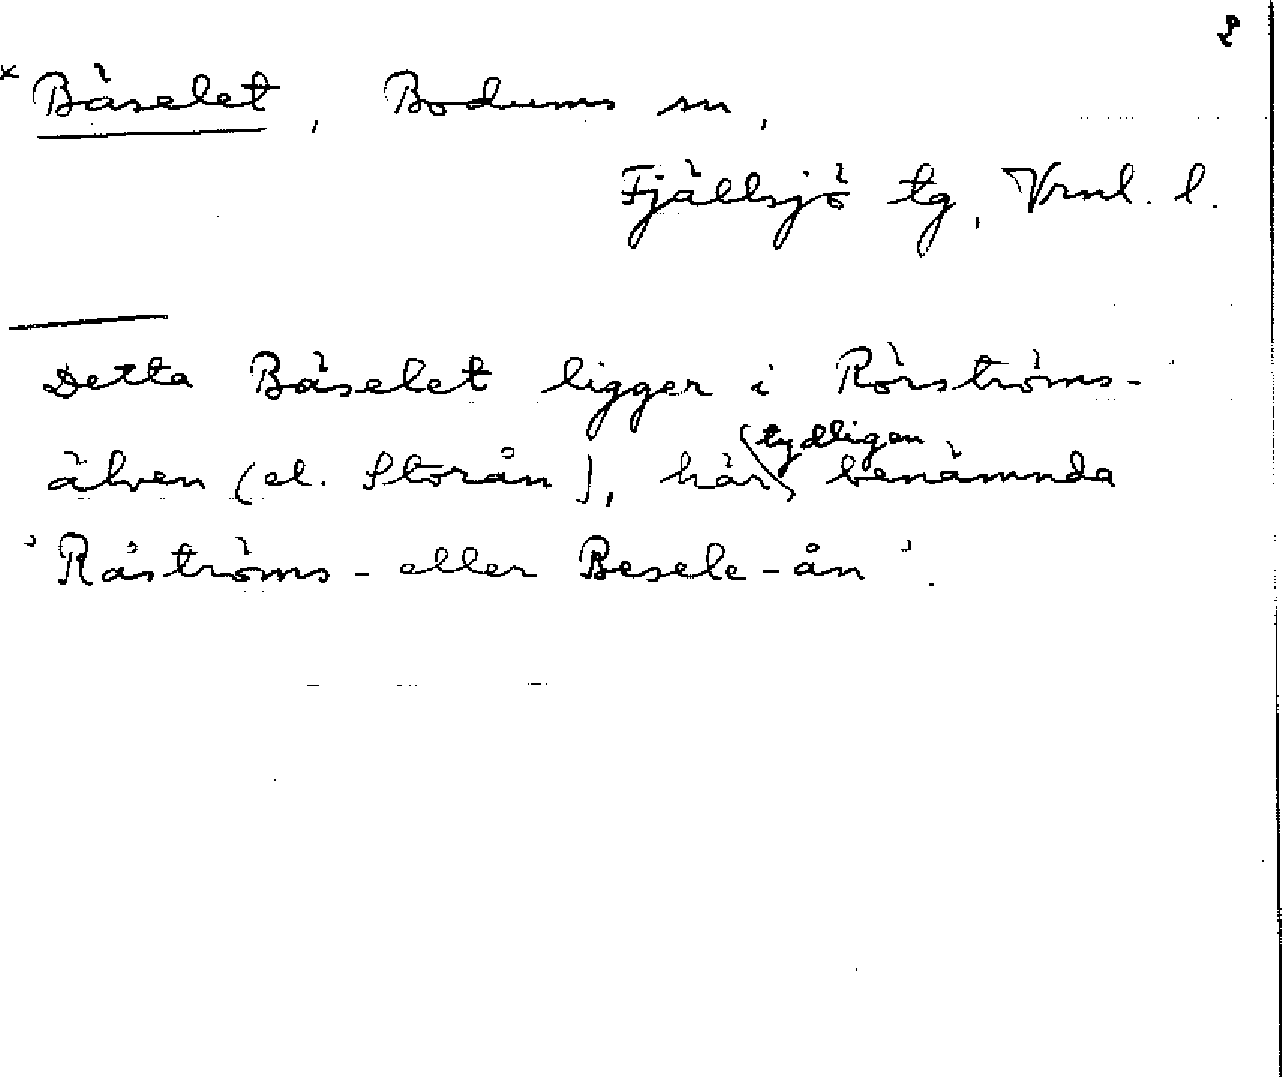 2
× Bäselet, Bodums sn,
Fjällsjö tg, Vrnl. l.
Detta Bäselet ligger i Rörströms-
älven (el. Storån), här tydligen benämnda
'Råströms- eller Besele-ån'.